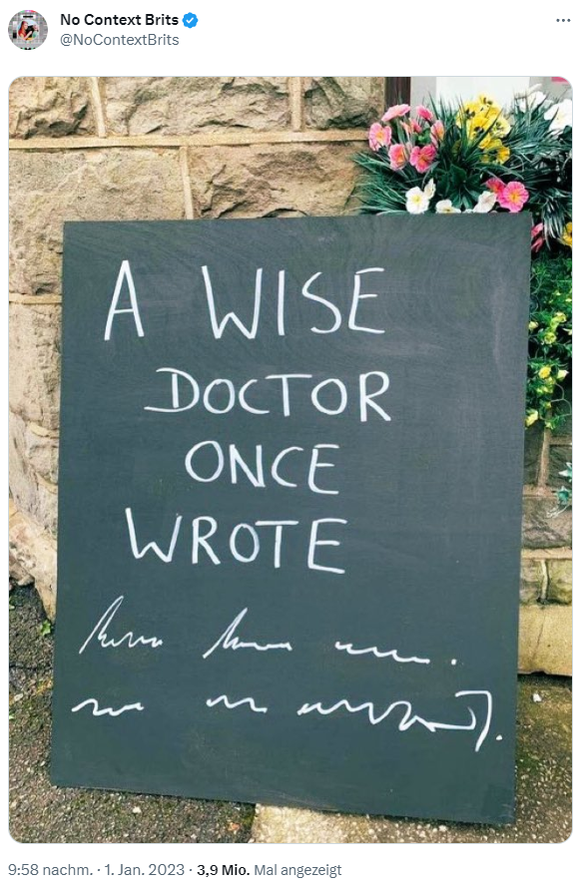 No Context Brits
@NoContextBrits
A WISE
DOCTOR
ONCE
WROTE
9:58 nachm. · 1. Jan. 2023 · 3,9 Mio. Mal angezeigt